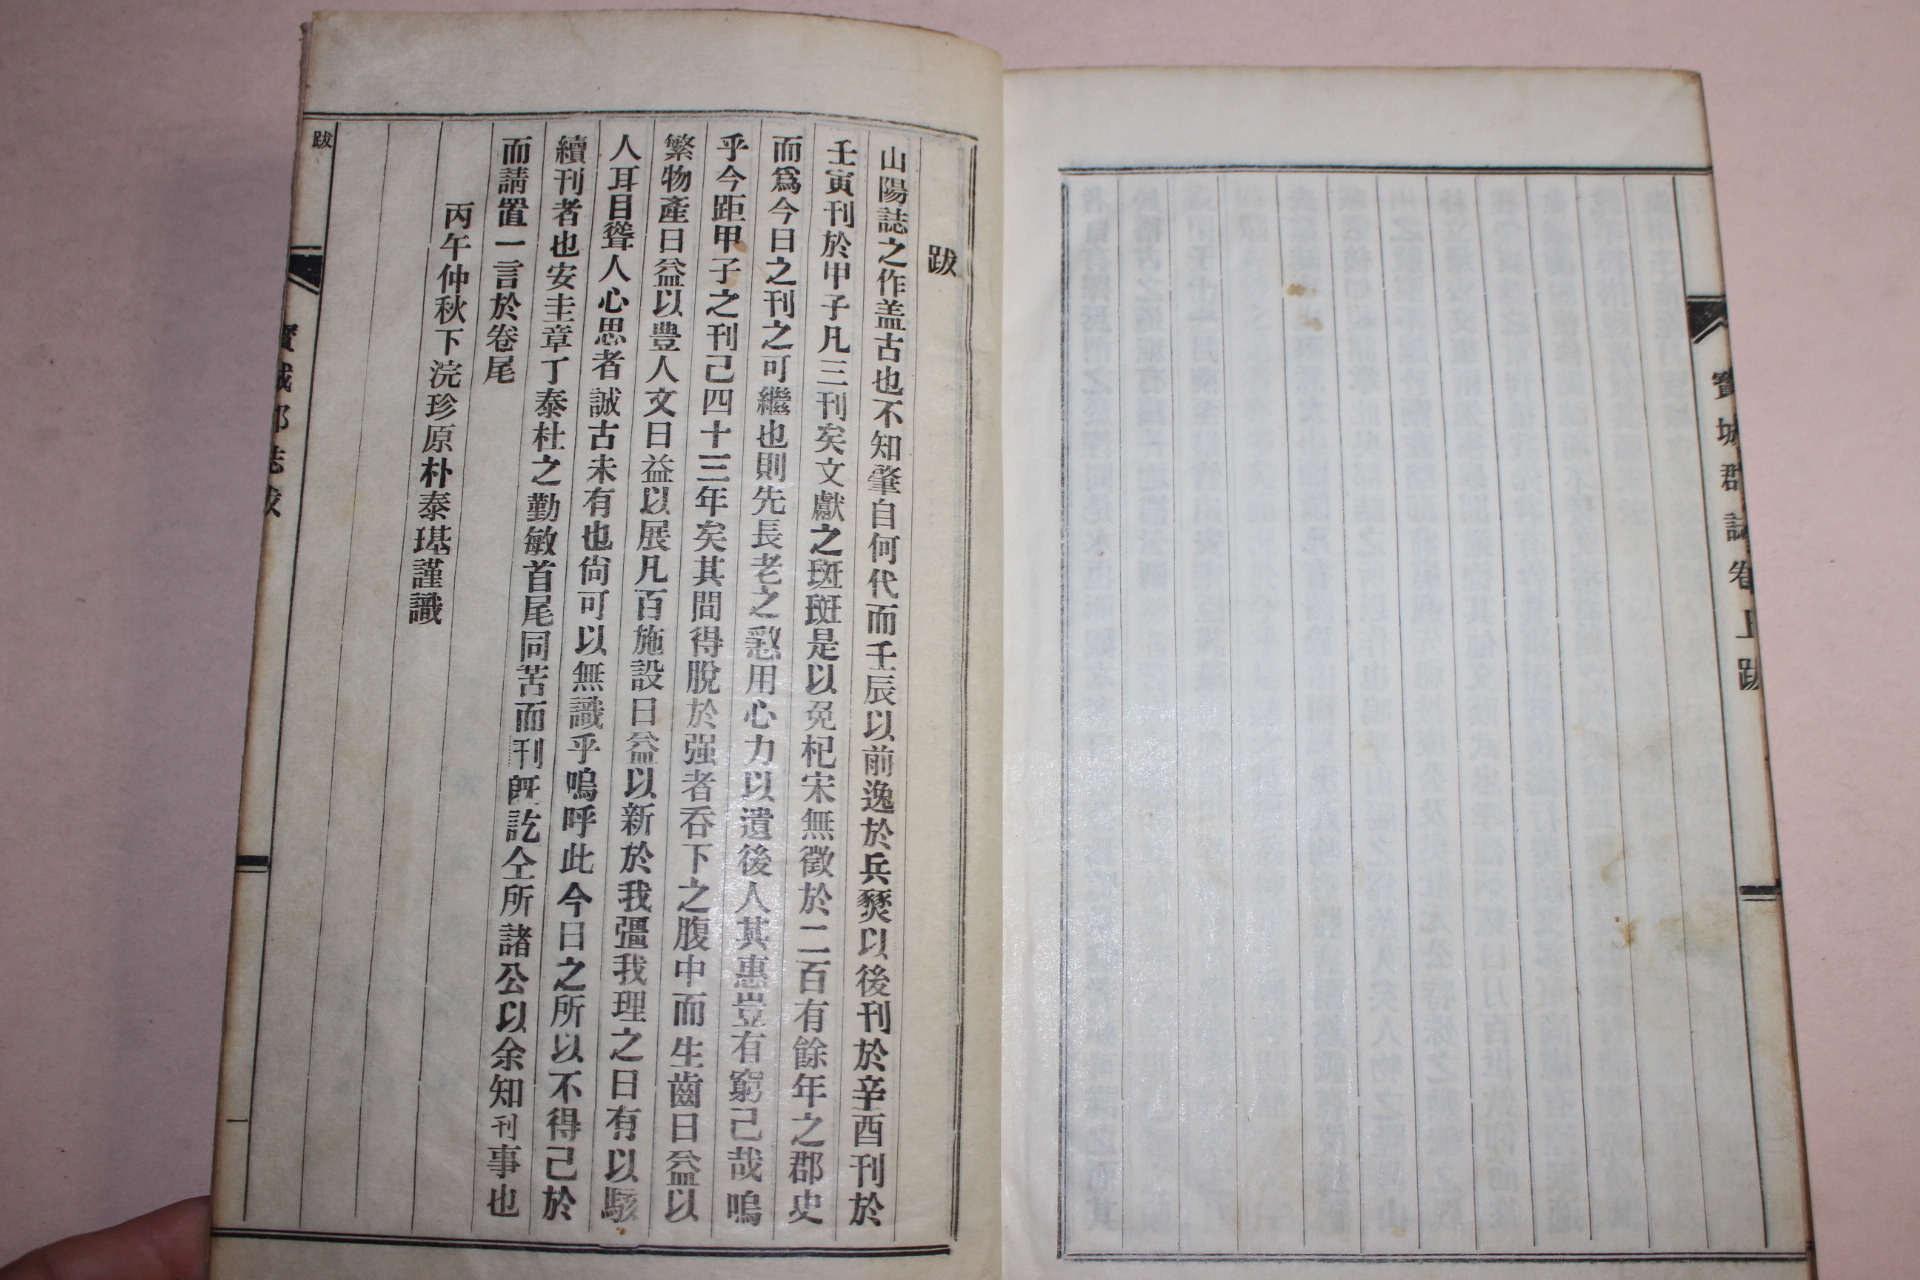 寶城郡誌卷上跋
跋
山陽誌之作盖古也不知肇自何代而壬辰以前逸於兵燹以後刊於辛酉刊於
壬寅刊於甲子凡三刊矣文獻之斑斑是以免杞宋無徵於二百有餘年之郡史
而爲今日之刊之可繼也則先長老之慇用心力以遺後人其惠豈有窮己哉嗚
乎今距甲子之刊己四十三年矣其間得脫於强者吞下之腹中而生齒日益以
繁物產日益以豊人文日益以展凡百施設日益以新於我彊我理之日有以駭
人耳目聳人心思者誠古未有也尙可以無識乎嗚呼此今日之所以不得己於
續刊者也安圭章丁泰杜之勤敏首尾同苦而刊旣訖仝所諸公以余知刊事也
而請置一言於卷尾
丙午仲秋下浣珍原朴泰堪謹識
跋
寶城郡誌跋
一